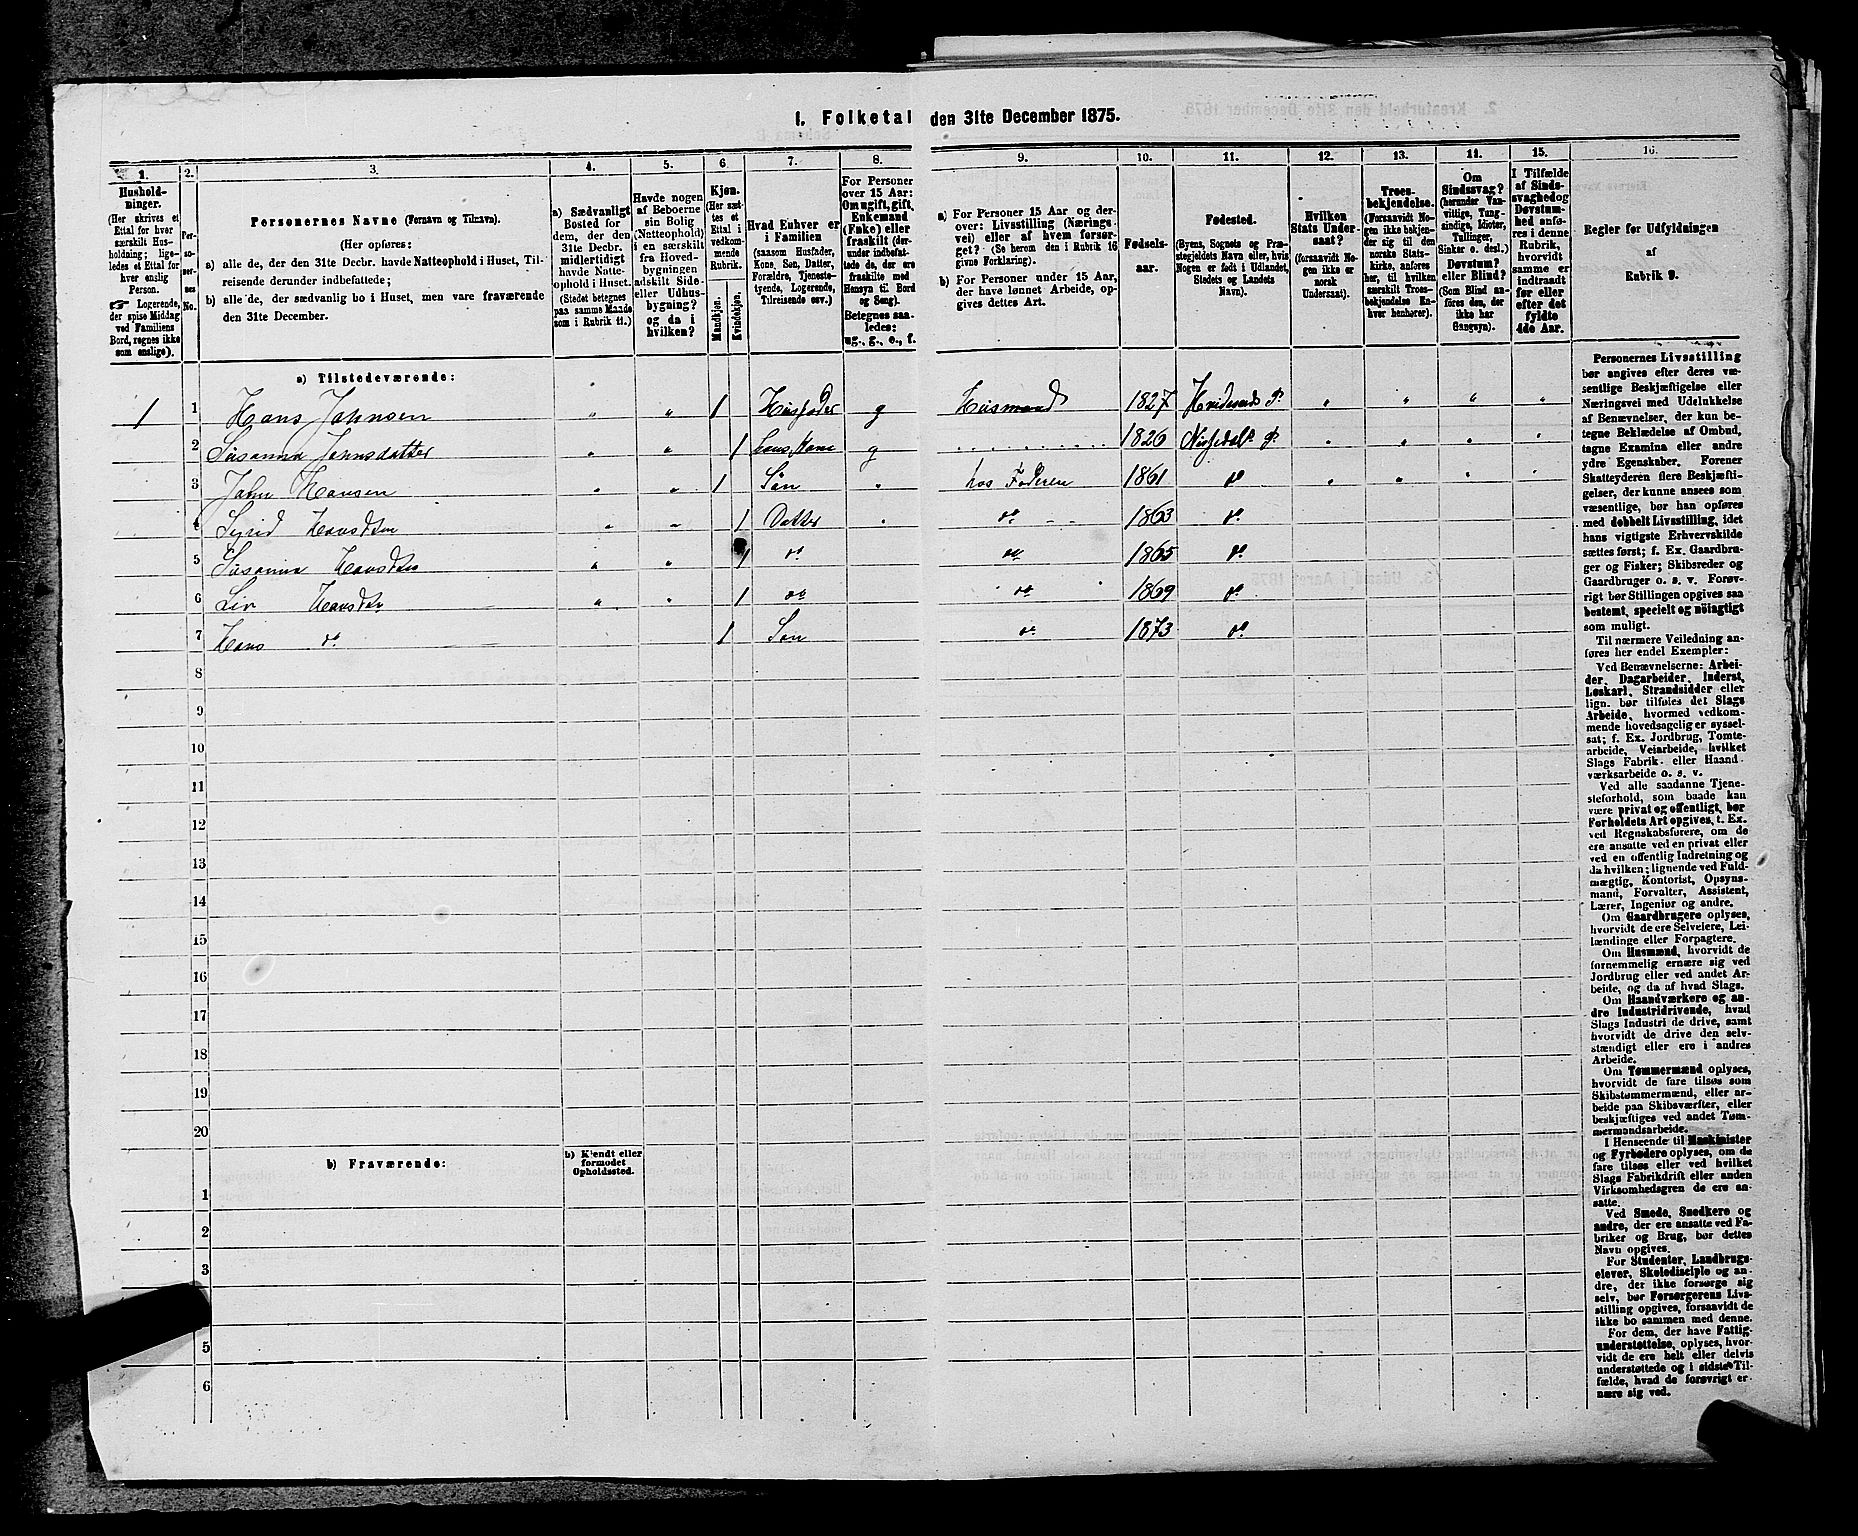 1. Folketal den 31te December 1875.
1. 2. 3. 4. 5. 6. 7. 8. 9. 10. 11. 12. 13. 14. 15. 16.
Hushold-
ninger.
(Her skrives et
Ettal for hver
særskilt Hus-
holdning; lige-
ledes et Ettal for
hver enslig
Person.
☞ Logerende,
der spise Middag
ved Familiens
Bord, regnes ikke
som enslige).
Per-
so-
ner-
nes
No.
Personernes Navne (Fornavn og Tilnavn).
(Her opføres:
a) alle de, der den 31te Decbr. havde Natteophold i Huset, Til-
reisende derunder indbefattede;
b) alle de, der sædvanlig bo i Huset, men vare fraværende
den 31te December.
a) Sædvanligt
Bosted for
dem, der den
31te Decbr.
midlertidigt
havde Natte-
ophold i Huset.
(Stedet betegnes
paa samme Maade
som i Rubrik 11.)
Havde nogen
af Beboerne
sin Bolig
(Natteophold)
i en særskilt
fra Hoved-
bygningen
adskilt Side-
eller Udhus-
bygning?
og da i
hvilken?
Kjøn.
(Her sæt-
tes et
Ettal i
vedkom-
mende
Rubrik.
Mandkjøn.
Kvindekjøn.
Hvad Enhver er
i Familien
(saasom Husfader,
Kone, Søn, Datter,
Forældre, Tjeneste-
tyende, Logerende,
Tilreisende osv.)
For Personer
over 15 Aar:
Om ugift, gift,
Enkemand
(Enke) eller
fraskilt (der-
under indbefat-
tede de, der ere
fraskilte med
Hensyn til Bord
og Seng).
Betegnes saa-
ledes:
ug., g., e., f.
a) For Personer 15 Aar og der-
over: Livsstilling (Nærings-
vei) eller af hvem forsør-
get? (Se herom den i Rubrik 16
givne Forklaring).
b) For Personer under 15 Aar,
der have lønnet Arbeide, op-
gives dettes Art.
Fødsels-
aar.
Fødested.
(Byens, Sognets og Præ-
stegjeldets Navn eller, hvis
Nogen er født i Udlandet,
Stedets og Landets
Navn).
Hvilken
Stats Under-
saat?
(forsaavidt No-
gen ikke er
norsk
Undersaat).
Troes-
bekjendelse.
(Forsaavidt No-
gen ikke bekjen-
der sig til den
norske Stats-
kirke, anføres
her, til hvilken
Troesbekjendelse En-
hver henhører).
Om
Sindssvag?
(herunder Van-
vittige, Tung-
sindige, Idioter,
Tullinger,
Sinker o. desl.)
Døvstum?
eller Blind?
(Som Blind an-
føres den, der
ikke har
Gangsyn).
I Tilfælde
af Sinds-
svaghed og
Døvstum-
hed anfø-
res i denne
Rubrik,
hvorvidt
samme er
indtraadt
før eller
efter det
fyldte
4de Aar.
Regler for Udfyldningen
af
Rubrik 9.
a) Tilstedeværende:
1 1 Hans Johnsen " " 1 Husfader g Husmand 1827 Hvidesøds P. " " " "
2 Susanna Johnsdatter " " 1 hans Kone g 1826 Nissedals P. " " " "
3 John Hansen " " 1 Søn " hos Faderen 1861 do " " " "
4 Sigrid Hansdtr " " 1 Datter " do 1863 do
5 Susanna Hansdtr " " 1 do do 1865 do
6 Liv Hansdtr " " 1 do do 1869 do
7 Hans do 1 Søn do 1873 do
8
9
10
11
12
13
14
15
16
17
18
19
20
b) Fraværende:
b) Kjendt eller
formodet
Opholdssted.
1
2
3
5
6
Personernes Livsstilling
bør angives efter deres væ-
sentlige Beskjæftigelse eller
Næringsvei med Udelukkelse
af Benævnelser, der kun be-
tegne Beklædelse af Ombud,
tagne Examina eller andre
ydre Egenskaber. Forener
Skatteyderen flere Beskjæfti-
gelser, der kunne ansees som
væsentlige, bør han opføres
med dobbelt Livsstilling, idet
hans vigtigste Erhvervskilde
sættes først; f. Ex. Gaardbru-
ger og Fisker; Skibsreder og
Gaardbruger o. s. v. Forøv-
rigt bør Stillingen opgives saa
bestemt, specielt og nöiagtigt
som muligt.
Til nærmere Veiledning an-
føres her endel Exempler:
Ved Benævnelserne: Arbei-
der, Dagarbeider, Inderst,
Løskarl, Strandsidder eller
lign. bør tilføies det Slags
Arbeide, hvormed vedkom-
mende hovedsagelig er syssel-
sat; f. Ex. Jordbrug, Tomte-
arbeide, Veiarbeide, hvilket
Slags Fabrik- eller Haand-
værksarbeide o. s. v.
Ved alle saadanne Tjene-
steforhold, som baade kan
være privat og offentligt, bør
Forholdets Art opgives, t. Ex.
ved Regnskabsførere, om de
ere ansatte ved en privat eller
ved en offentlig Indretning og
da hvilken; lignende ved Fuld-
mægtig, Kontorist, Opsyns-
mand, Forvalter, Assistent,
Lærer, Ingeniør og andre.
Om Gaardbrugere oplyses,
hvorvidt de ere Selveiere, Lei-
lændinge eller Forpagtere.
Om Husmænd, hvorvidt de
fornemmelig ernære sig ved
Jordbrug eller ved andet Ar-
beide, og da af hvad Slags.
Om Haandværkere og an-
dre Industridrivende, hvad
Slags Industri de drive, samt
hvorvidt de drive den selv-
stændigt eller ere i andres
Arbeide.
Om Tømmermænd oplyses,
hvorvidt de fare tilsøs som
Skibstømmermænd, eller ar-
beide paa Skibsværfter, eller
beskjæftiges ved andet Tøm-
mermandsarbeide.
I Henseende til Maskinister
og Fyrbødere oplyses, om de
fare tilsøs eller ved hvilket
Slags Fabrikdrift eller anden
Virksomhedsgren de ere an-
satte.
Ved Smede, Snedkere og
andre, der ere ansatte ved Fa-
briker og Brug, bør dettes
Navn opgives.
For Studenter, Landbrugs-
elever, Skoledisciple og an-
dre, der ikke forsørge sig
selv, bør Forsørgerens Livs-
stilling opgives, forsaavidt de
ikke bo sammen med denne.
For dem, der have Fattig-
understøttelse, oplyses, hvor-
vidt de ere helt eller delvis
understøttede og i sidste Til-
fælde, hvad de forøvrigt er-
nære sig ved.